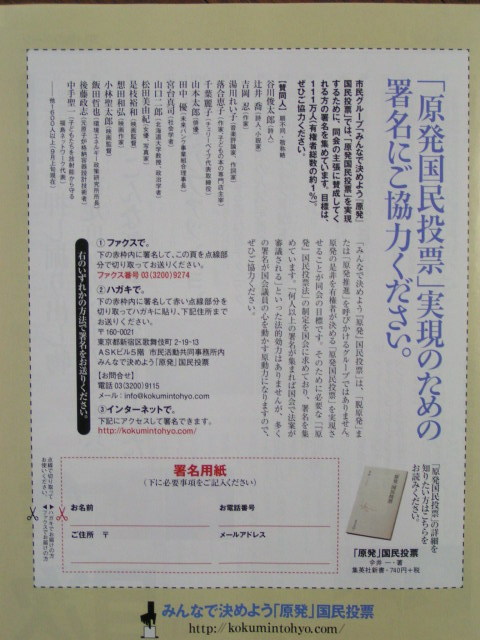 「原発国民投票」実現のための
署名にご協力ください。
市民グループ「みんなで決めよう『原発』
国民投票」では、「原発国民投票」を実現
するために、同会の主張に賛成してく
れる方の署名を集めています。目標は、
111万人(有権者総数の約1%)。
ぜひご協力ください。
【賛同人】
谷川俊太郎(詩人)
辻井 喬(詩人、小説家)
吉岡 忍(作家)
湯川れい子(音楽評論家、作詞家)
落合恵子(作家、子どもの本の専門店主宰)
山本太郎(俳優)
田中 優(未来バンク事業組合理事長)
宮台真司(社会学者)
山口二郎(北海道大学教授、政治学者)
松田美由紀(女優、写真家)
是枝裕和(映画監督)
想田和弘(映画作家)
小林聖太郎(映画監督)
飯田哲也(環境エネルギー政策研究所所長)
後藤政志(元原子炉格納容器設計技術者)
中手聖一(子どもたちを放射能から守る
福島ネットワーク代表)
「みんなで決めよう『原発』国民投票」は、「脱原発」ま
たは「原発推進」を呼びかけるグループではありません。
原発の是非を有権者が決める「原発国民投票」を実現さ
せることが同会の目標です。そのために必要な「『原
発』国民投票法」の制定を国会に求めており、署名を集
めています。「何人以上の署名が集まれば国会で法案が
審議される」といった法的効力はありませんが、多く
の署名が国会議員の心を動かす原動力になりますので、
ぜひご協力ください。
右のいずれかの方法で署名をお送りください。
①ファクスで。
下の赤枠内に署名して、この頁を点線部
分で切り取ってお送りください。
ファクス番号 03(3200)9274
②ハガキで。
下の赤枠内に署名して赤い点線部分を
切り取ってハガキに貼り、下記住所まで
お送りください。
〒160-0021
東京都新宿区歌舞伎町2-19-13
ASKビル5階 市民活動共同事務所内
みんなで決めよう「原発」国民投票
【お問合せ】
電話 03(3200)9115
メール:info@kokumintohyo.com
③インターネットで。
下記にアクセスして署名できます。
http://kokumintohyo.com/
「原発国民投票」の詳細を
知りたい方はこちらを
お読みください。
「原発」国民投票
今井 一・著
集英社新書・740円+税
署名用紙
(下に必要事項をご記入ください)
お名前
お電話番号
ご住所 〒
メールアドレス
点線で切り取って
お使いください。
みんなで決めよう「原発」国民投票
http://kokumintohyo.com/